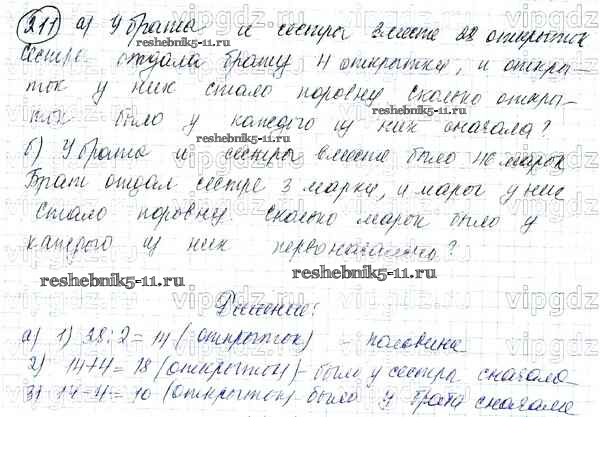 211 а) У брата и сестры вместе 28 открыток
сестра отдала брату 4 открытки, и откры-
ток у них стало поровну сколько откры-
ток было у каждого из них сначала?
б) У брата и сестры вместе было 40 марок
Брат отдал сестре 3 марки, и марог у них
стало поровну сколько марок было у
каждого из них первоначально?
reshebnik5-11.ru
Решение:
а) 1) 28:2=14 (открыток) - половина
2) 14+4=18 (открыток) - было у сестра сначала
3) 14-4=10 (открыток) - было у брата сначала